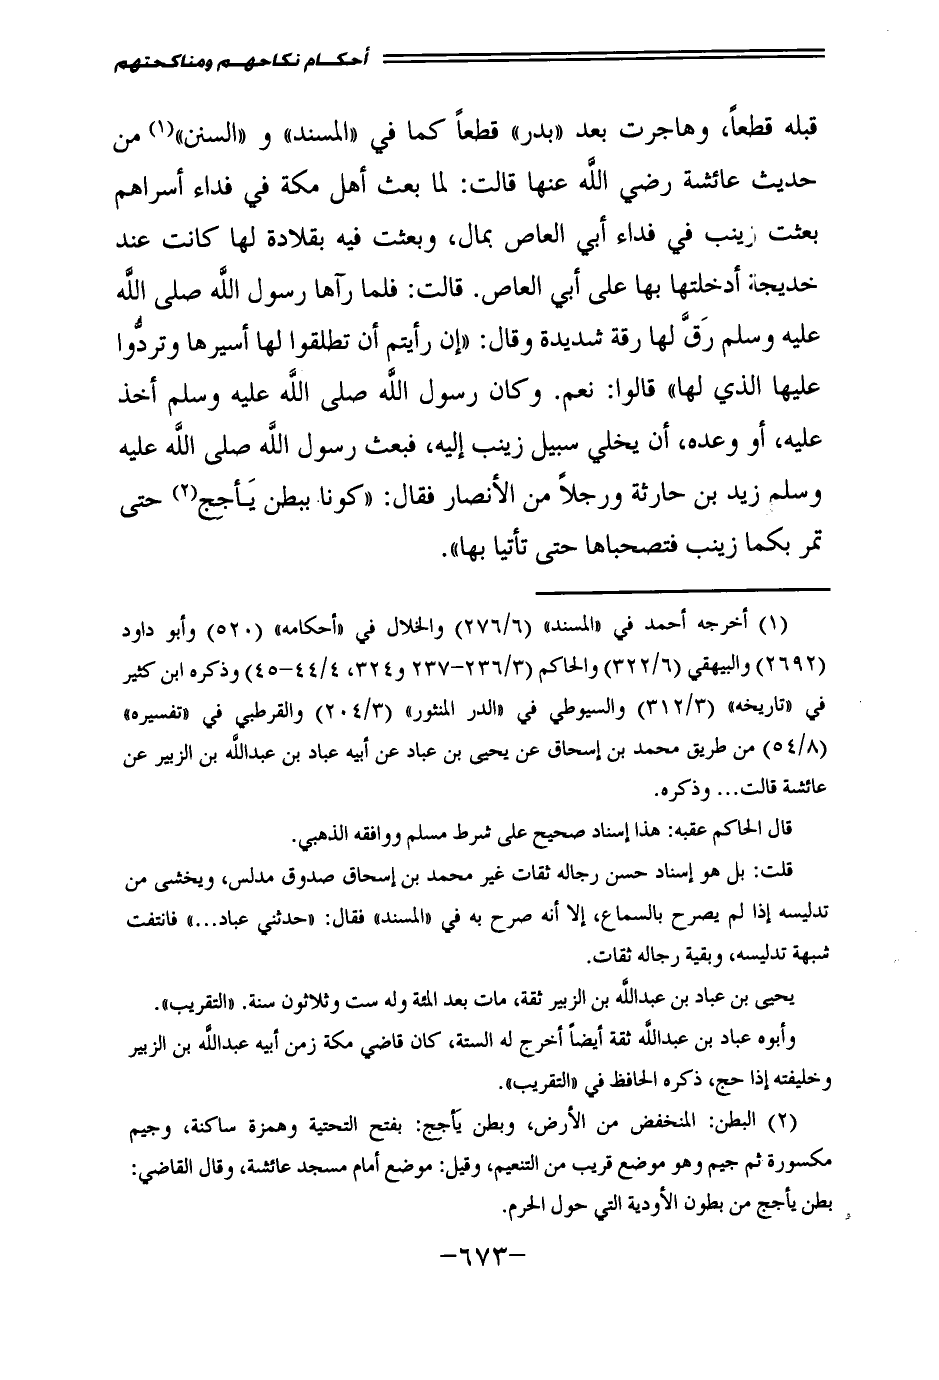 أحكام نكاحهم ومناكحتهم
قبله قطعاً، وهاجرت بعد «بدر» قطعاً كما في «المسند» و «السنن»(١) من
حديث عائشة رضي اللَّه عنها قالت: لما بعث أهل مكة في فداء أسراهم
بعثت زينب في فداء أبي العاص بمال، وبعثت فيه بقلادة لها كانت عند
خديجة أدخلتها بها على أبي العاص. قالت: فلما رآها رسول اللَّه صلى اللَّه
عليه وسلم رَقَّ لها رقة شديدة وقال: «إن رأيتم أن تطلقوا لها أسيرها وتردُّوا
عليها الذي لها» قالوا: نعم. وكان رسول اللَّه صلى اللَّه عليه وسلم أخذ
عليه، أو وعده، أن يخلي سبيل زينب إليه، فبعث رسول اللَّه صلى اللَّه عليه
وسلم زيد بن حارثة ورجلاً من الأنصار فقال: «كونا ببطن يَأجِج(٢) حتى
تمر بكما زينب فتصحباها حتى تأتيا بها».
(١) أخرجه أحمد في «المسند» (٢٧٦/٦) والخلال في «أحكامه» (٥٢٠) وأبو داود
(٢٦٩٢) والبيهقي (٣٢٢/٦) والحاكم (٢٣٦/٣–٢٣٧ و٣٢٤، ٤٤/٤–٤٥) وذكره ابن كثير
في «تاريخه» (٣١٢/٣) والسيوطي في «الدر المنثور» (٢٠٤/٣) والقرطبي في «تفسيره»
(٥٤/٨) من طريق محمد بن إسحاق عن يحيى بن عباد عن أبيه عباد بن عبداللَّه بن الزبير عن
عائشة قالت... وذكره.
قال الحاكم عقبه: هذا إسناد صحيح على شرط مسلم ووافقه الذهبي.
قلت: بل هو إسناد حسن رجاله ثقات غير محمد بن إسحاق صدوق مدلس، ويخشى من
تدليسه إذا لم يصرح بالسماع، إلا أنه صرح به في «المسند» فقال: «حدثني عباد...» فانتفت
شبهة تدليسه، وبقية رجاله ثقات.
يحيى بن عباد بن عبداللَّه بن الزبير ثقة، مات بعد المئة وله ست وثلاثون سنة. «التقريب».
وأبوه عباد بن عبداللَّه ثقة أيضاً أخرج له الستة، كان قاضي مكة زمن أبيه عبداللَّه بن الزبير
وخليفته إذا حج، ذكره الحافظ في «التقريب».
(٢) البطن: المنخفض من الأرض، وبطن يَأجِج: بفتح التحتية وهمزة ساكنة، وجيم
مكسورة ثم جيم وهو موضع قريب من التنعيم، وقيل: موضع أمام مسجد عائشة، وقال القاضي:
بطن يأجج من بطون الأودية التي حول الحرم.
–٦٧٣–